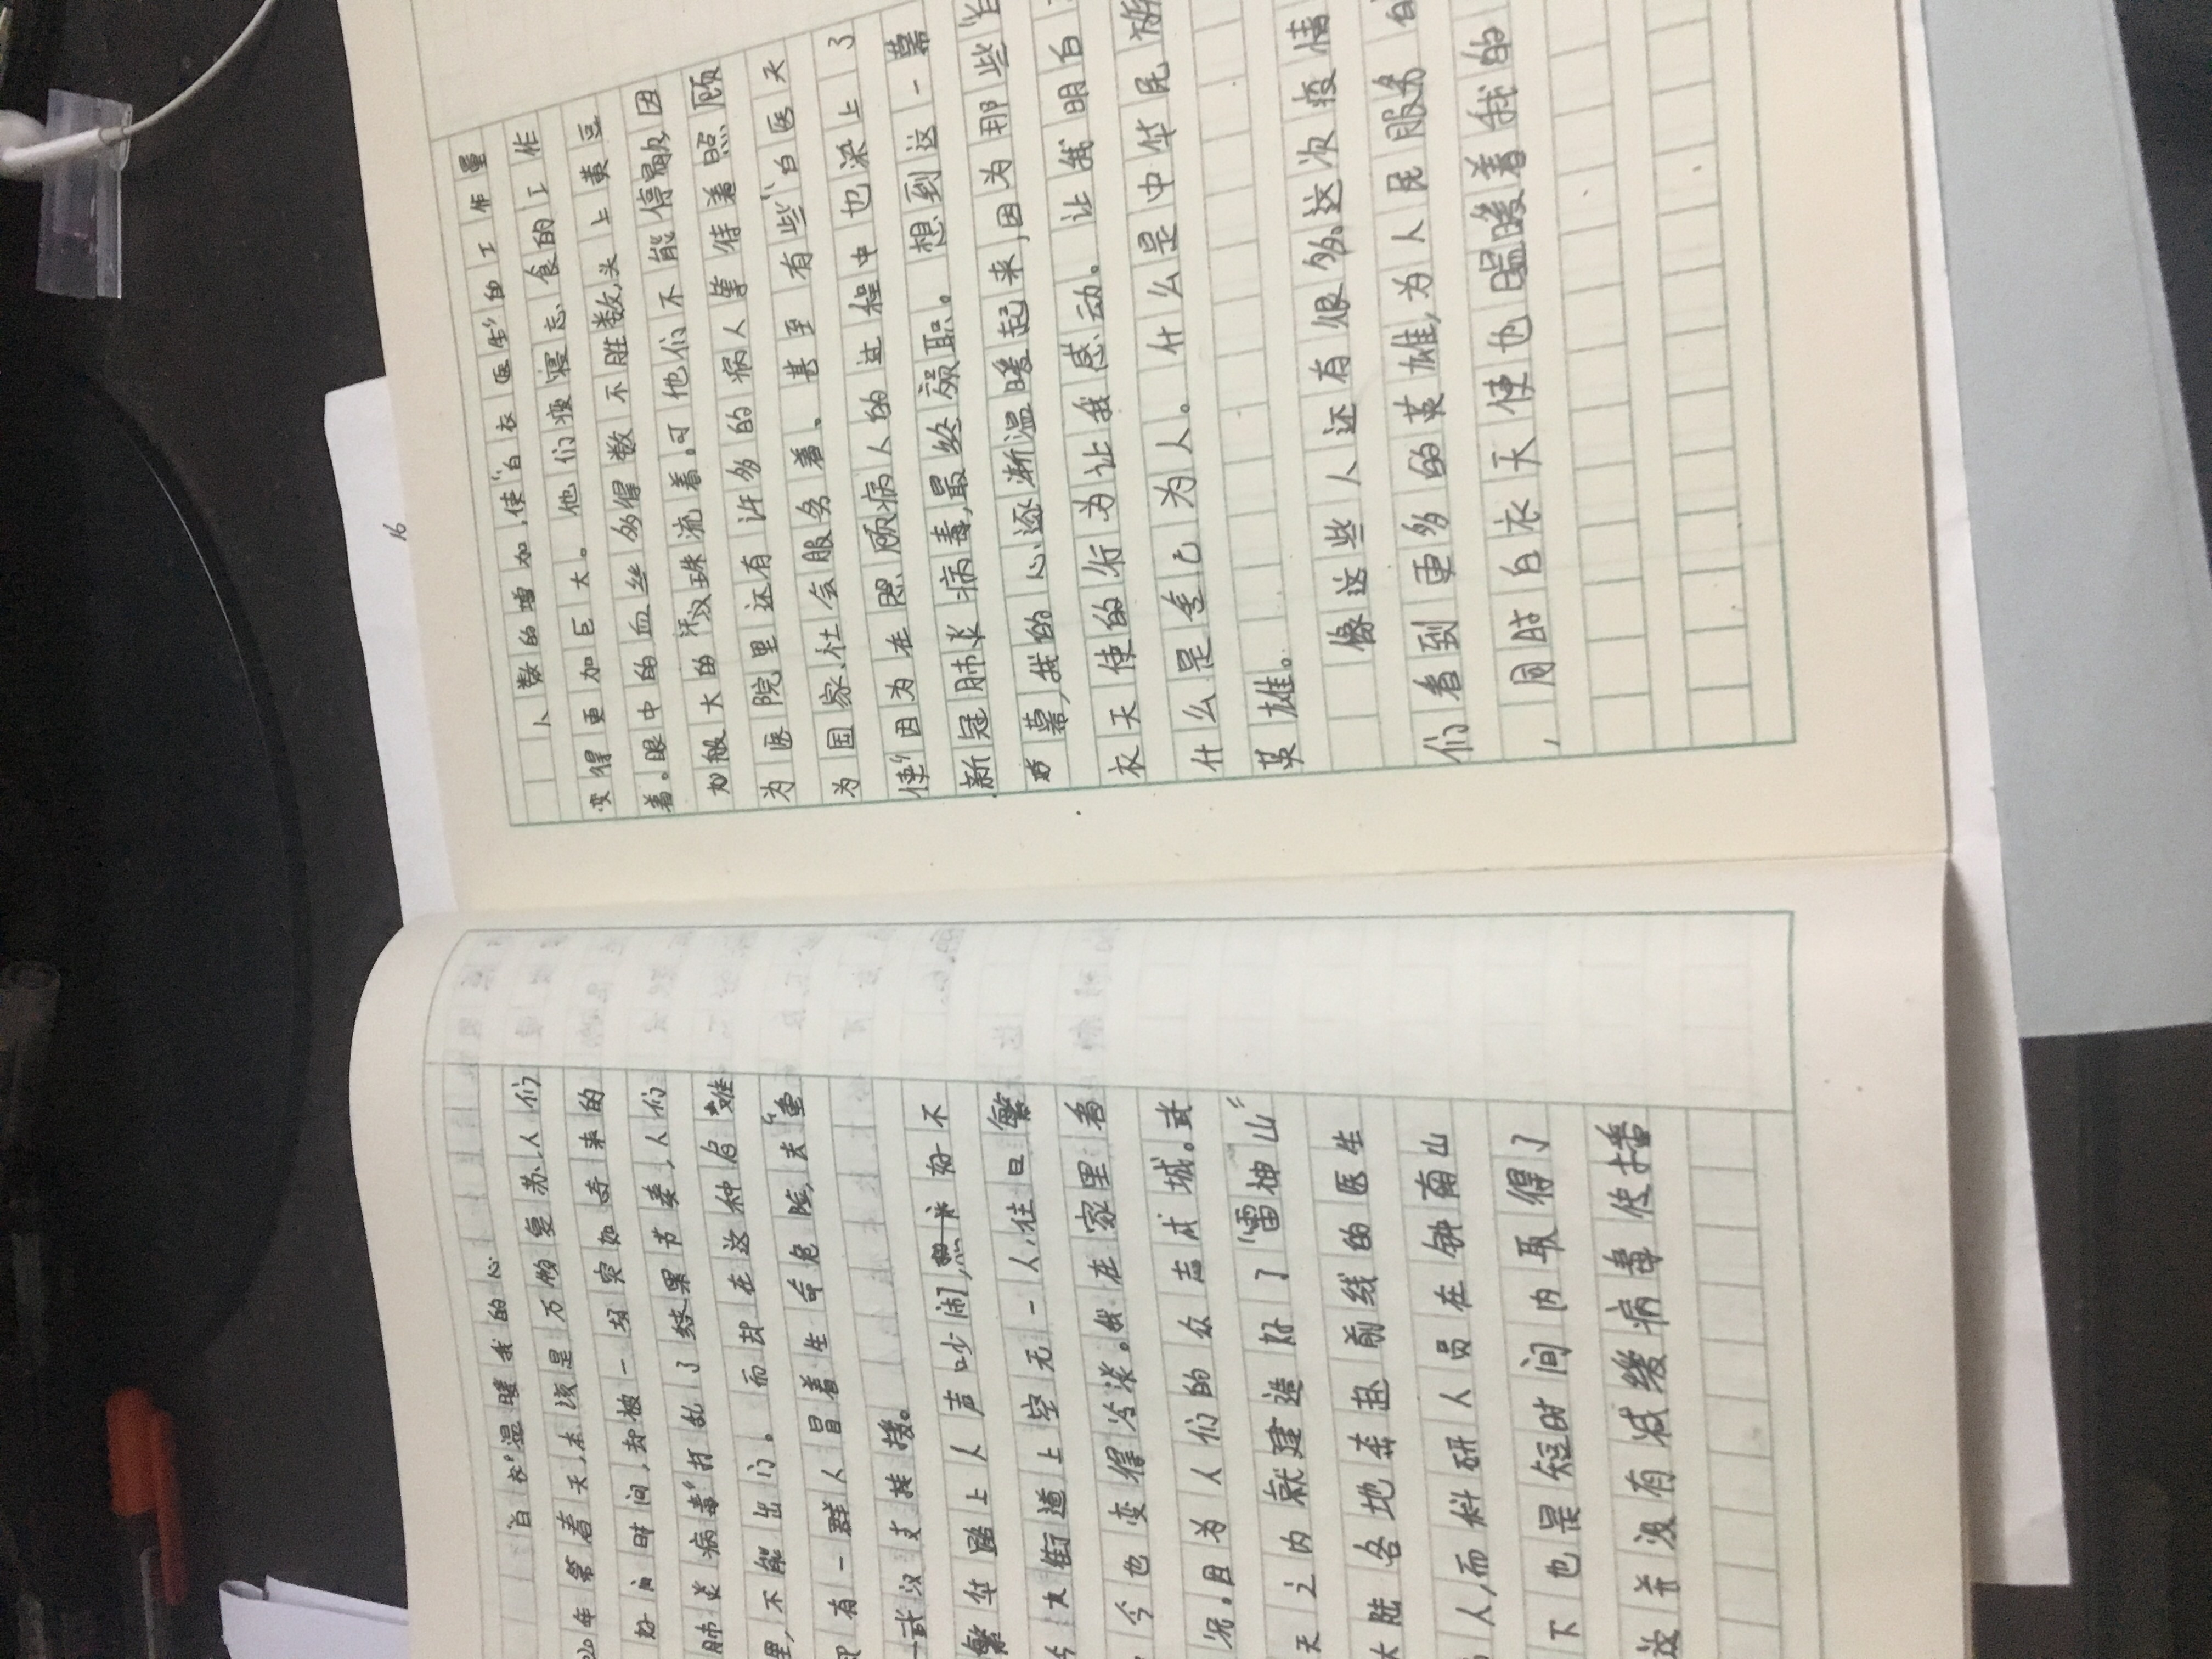 "白衣"温暖我的心
年第着天,本该是万物复苏,人们
好的时间,却被一场突如奇来的
肺炎病毒"打乱了结果节奏,人们
里,不能出门。而却在这种启难
却有一群人冒着生命危险,去"重
武汉支持援。
繁华路上人声吵闹,好不
大街道上空无一人,往日繁
今也变得冷漠。我在家里看
况。且为人们的众志成城。武
天之内就建造好了"雷神山"
大陆各地奔赴前线的医生
人,而科研人员在钟南山
下也是短时间内取得了
没并没有减缓病毒使播
人数的增加,使"白衣医生"的工作量
变得更加巨大。他们废寝忘食的工作
着。眼中的血丝多得数不胜数,头上黄豆
般大的汗汉珠流着。可他们不能停歇,因
为医院里还有许多的病人等待着照顾
为国家、社会服务着、甚至有些"白医天
使"因为在照顾病人的过程中也染上了
新冠肺炎病毒,最终殉职。想到这一幕
幕,我的心逐渐温暖起来,因为那些"白
衣天使的行为让我感动。让我明白
什么是舍己为人。什么是中华民族
英雄。
像这些人还有很多、这次疫情
们看到更多的英雄,为人民服务
,同时白衣天使也温暖着我的
16